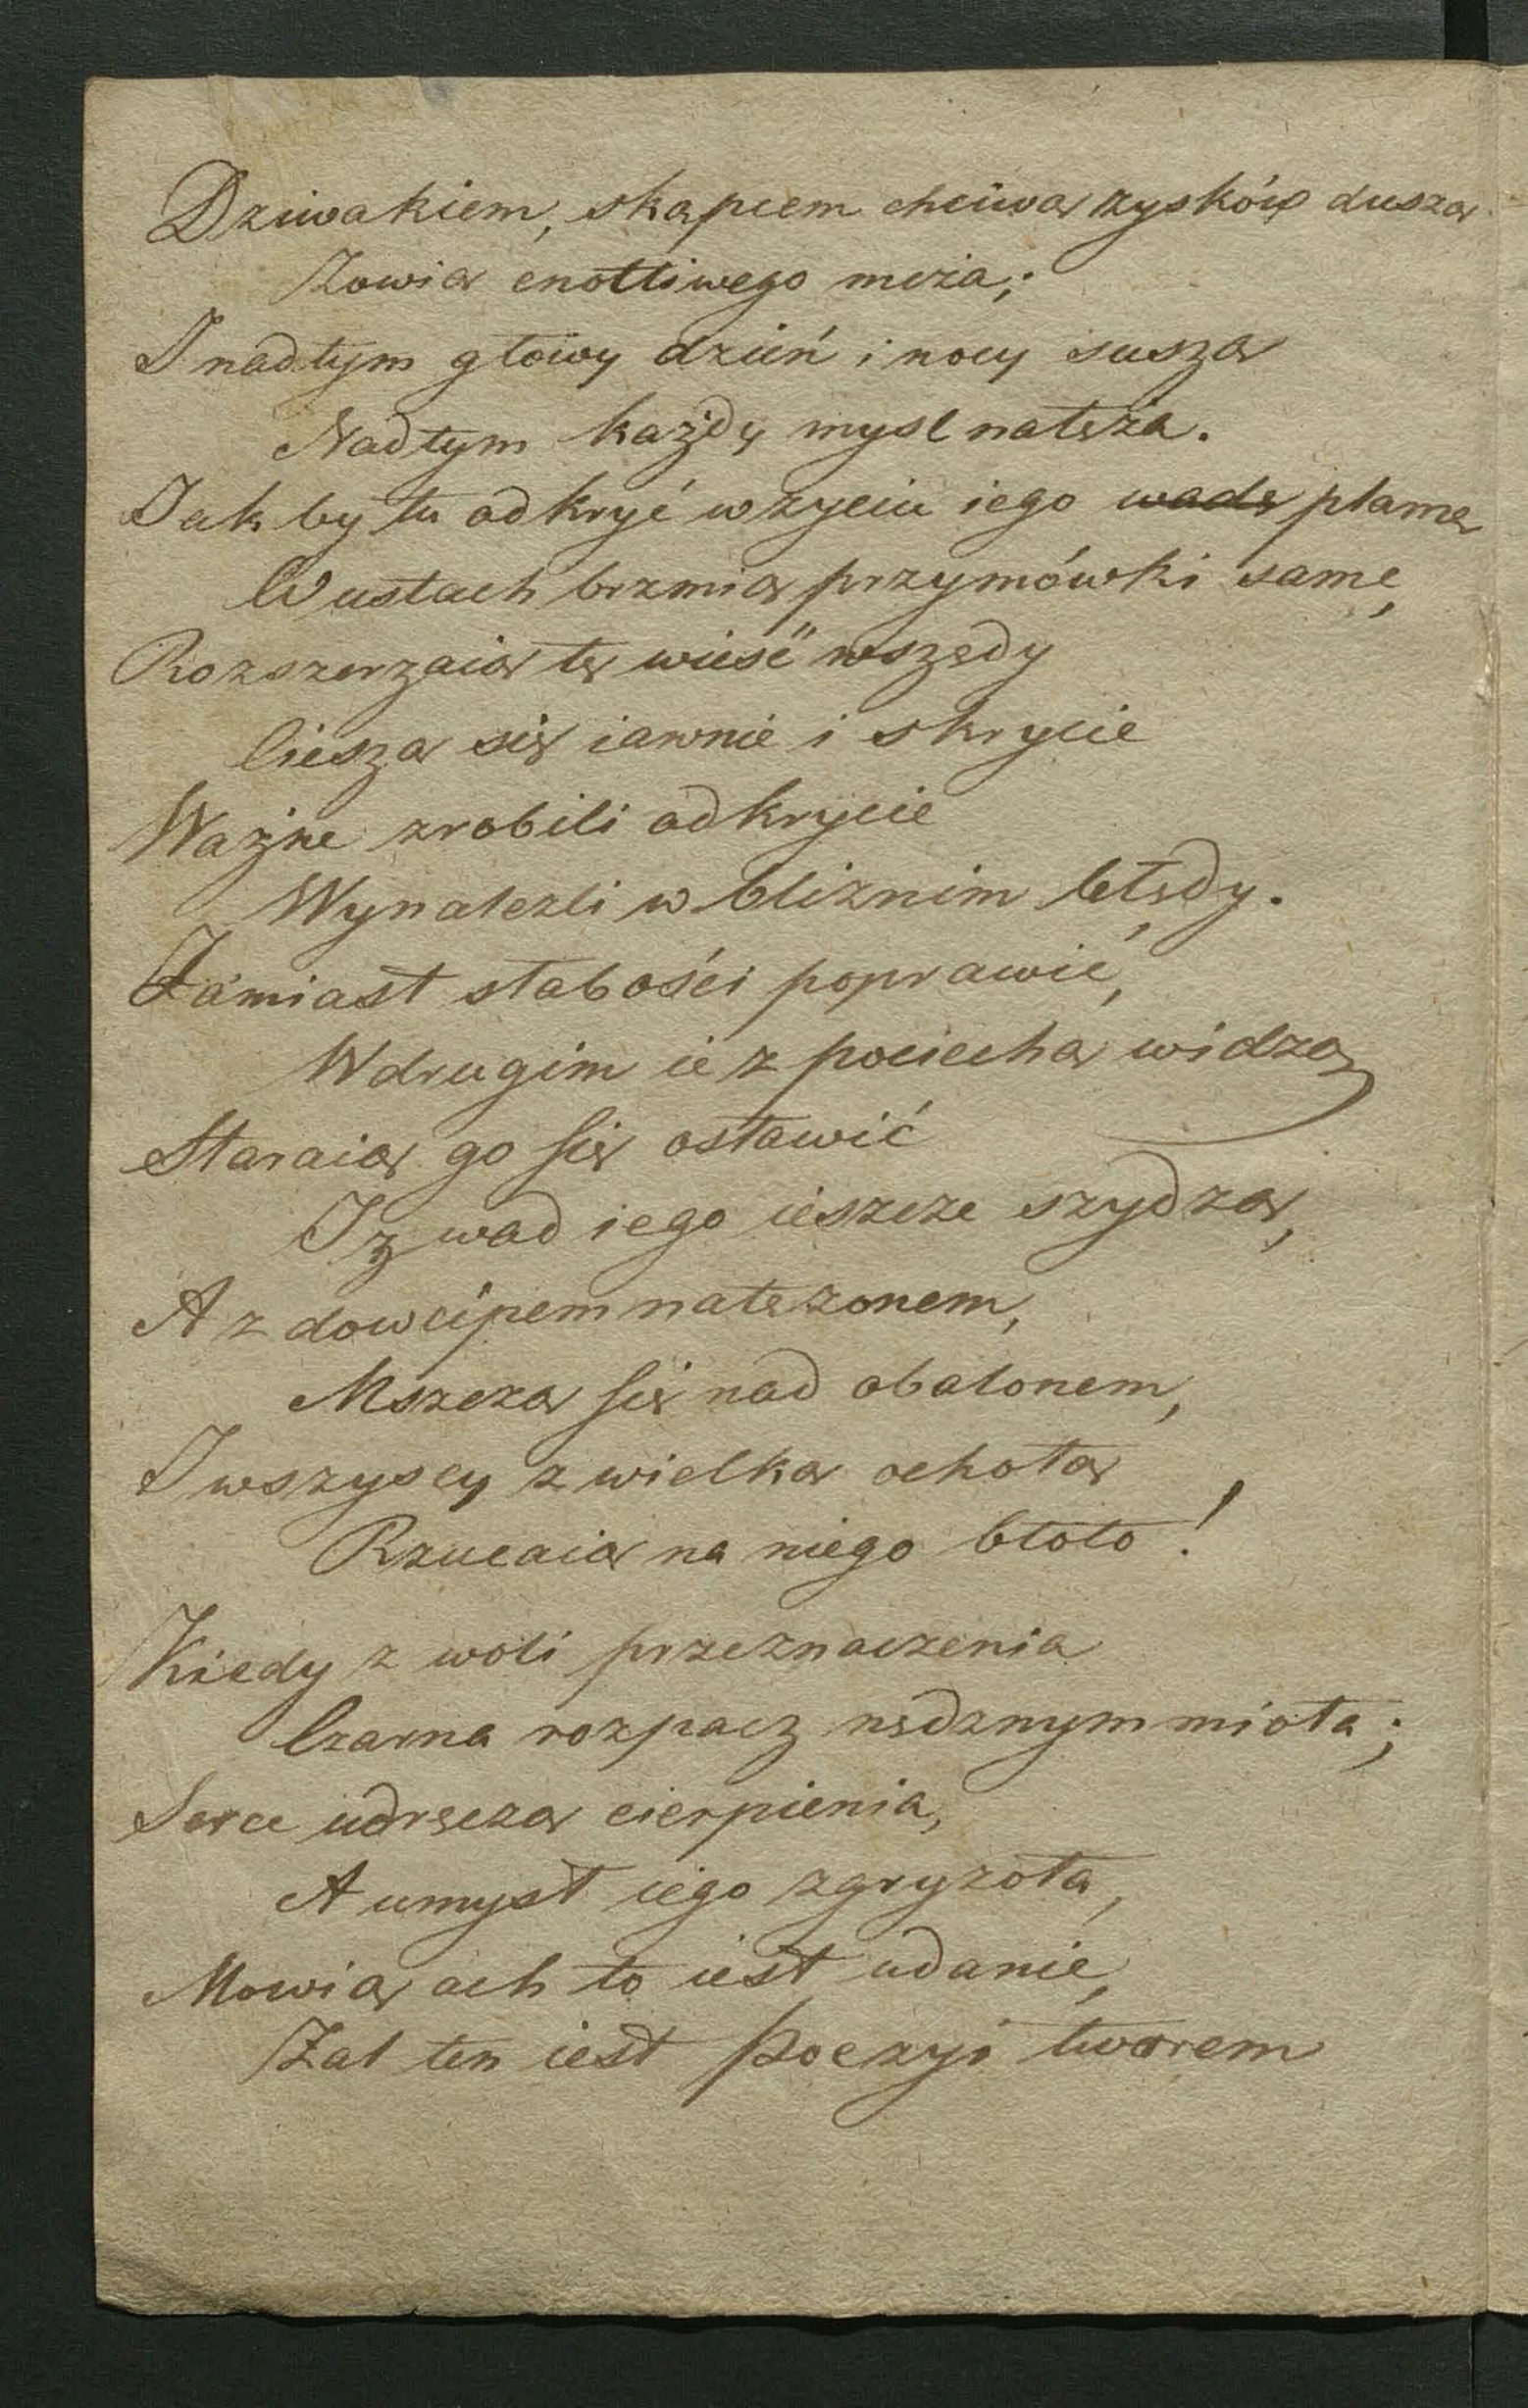 Dziwakiem, skąpcem chciwą zysków duszą
Zowią cnotliwego męża;
I nad tym głowy dzień i nocy suszą
Nad tym każdy mysl natęża.
Jak by tu odkryć w zyciu iego wadę plamę
W ustach brzmią przymówki samę,
Rozszerzaią tę wieść wszędy
Cieszą się iawnie i skrycie
Ważne zrobili odkrycie
Wynalezli w bliznim błędy.
Zamiast słabości poprawić,
W drugim ie z pociechą widzą
Staraią go się osławić
I z wad iego ieszcze szydzą,
A z dowcipem natęzonem,
Mszczą się nad obalonem,
I wszyscy z wielką ochotą
Rzucaią na niego błoto!
Kiedy z woli przeznaczenia
Czarna rozpacz nędznym miota;
Serce udręczą cierpienia,
A umysł iego zgryzota,
Mowią ach to iest udanie,
Zal ten iest poezyi tworem